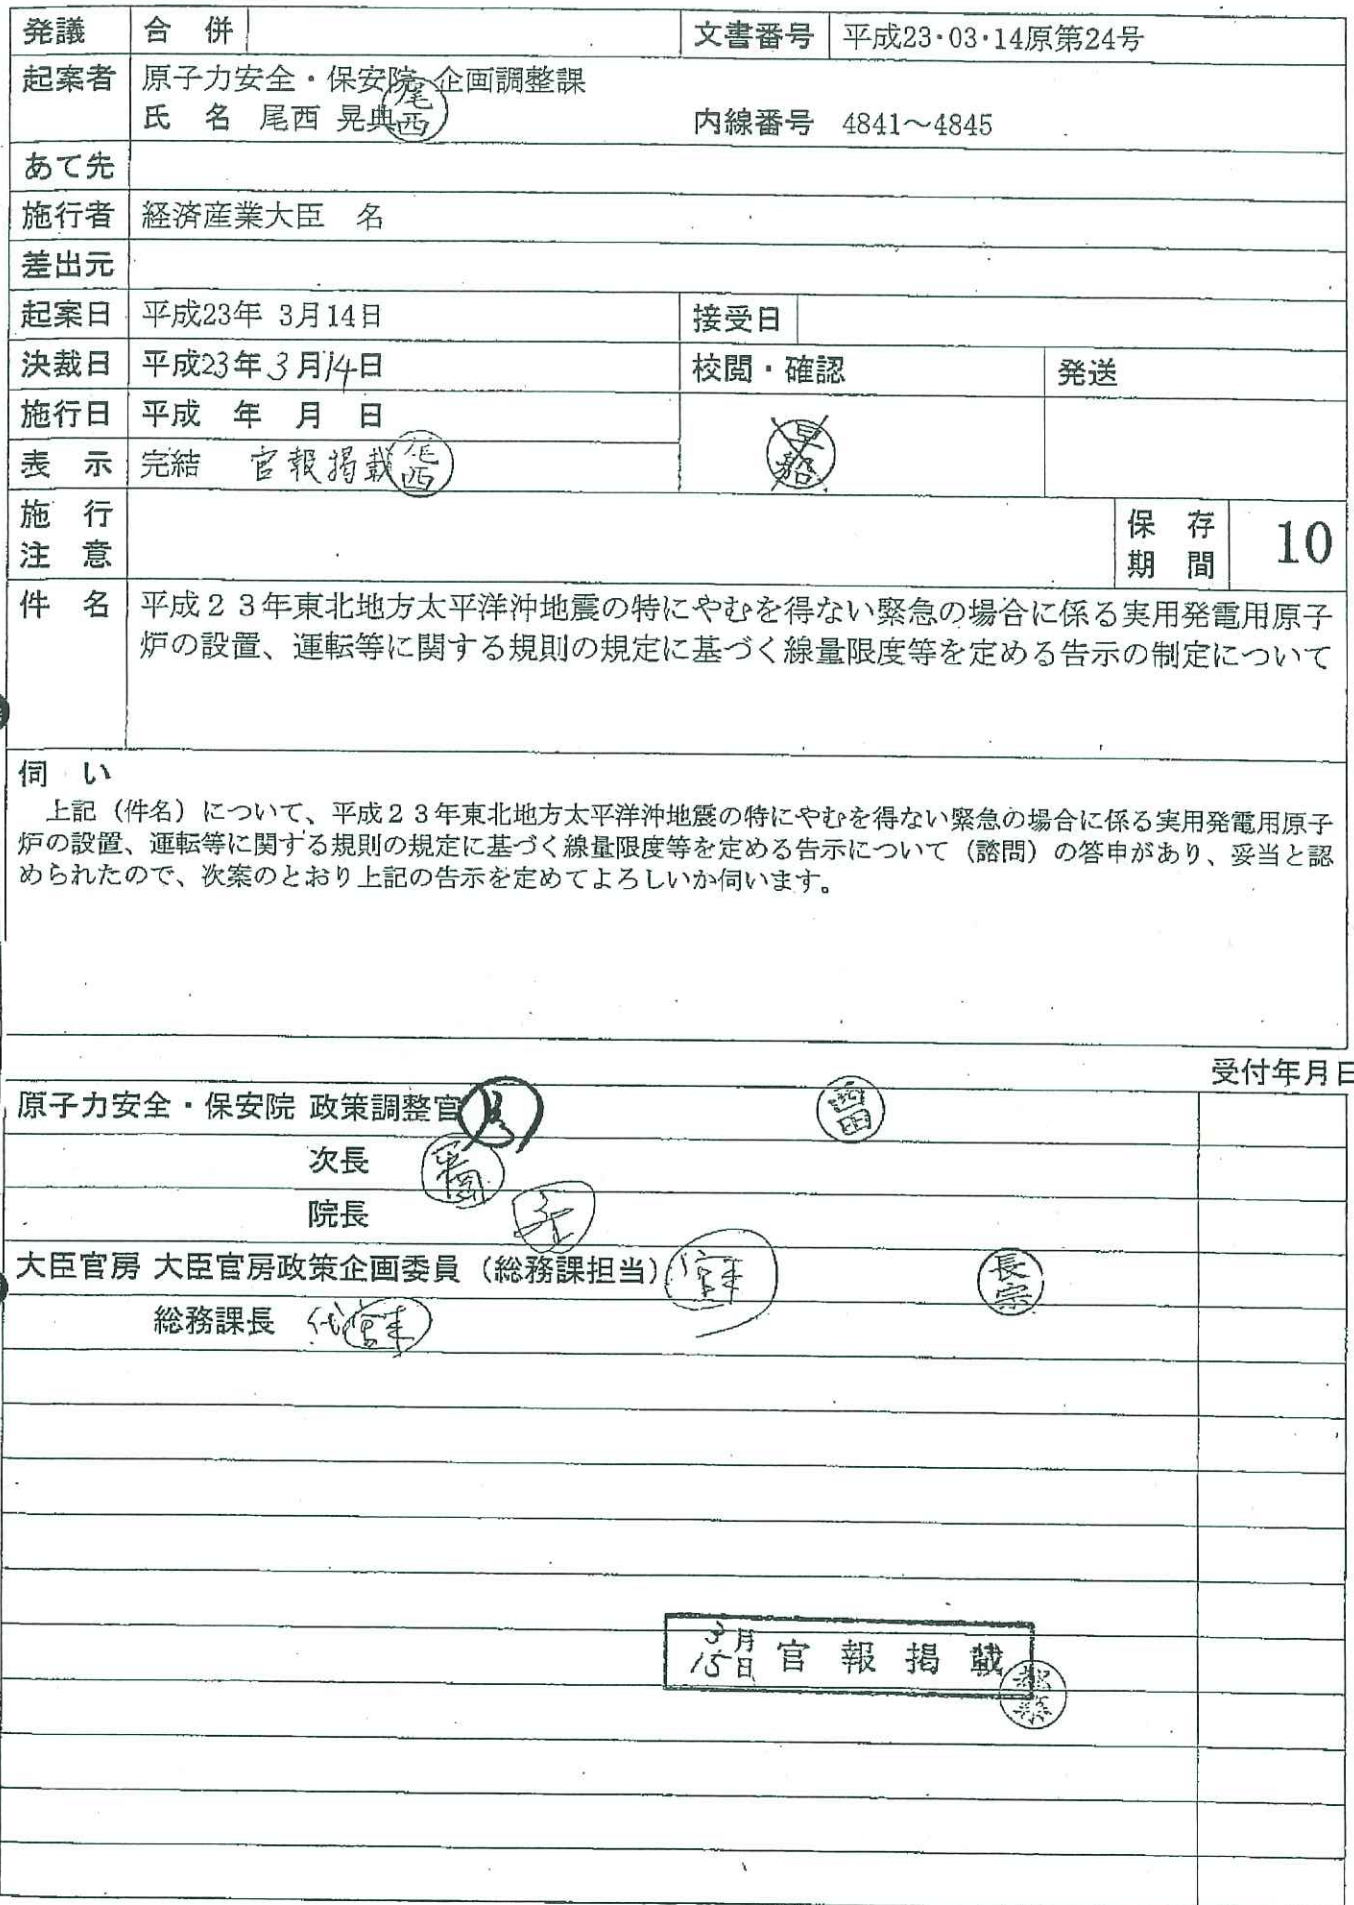 発議 合 併 文書番号 平成23・03・14原第24号
起案者 原子力安全・保安院 企画調整課
氏 名 尾西 晃典 尾西 内線番号 4841～4845
あて先
施行者 経済産業大臣 名
差出元
起案日 平成23年 3月14日 接受日
決裁日 平成23年3月14日 校閲・確認 発送
施行日 平成 年 月 日
表 示 完結 官報掲載 尾西
施 行
注 意
保 存
期 間
10
件 名 平成２３年東北地方太平洋沖地震の特にやむを得ない緊急の場合に係る実用発電用原子
炉の設置、運転等に関する規則の規定に基づく線量限度等を定める告示の制定について
伺 い
上記（件名）について、平成２３年東北地方太平洋沖地震の特にやむを得ない緊急の場合に係る実用発電用原子
炉の設置、運転等に関する規則の規定に基づく線量限度等を定める告示について（諮問）の答申があり、妥当と認
められたので、次案のとおり上記の告示を定めてよろしいか伺います。
受付年月日
原子力安全・保安院 政策調整官
次長
院長
大臣官房 大臣官房政策企画委員（総務課担当） 長宗
総務課長 代
3月
15日
官 報 掲 載